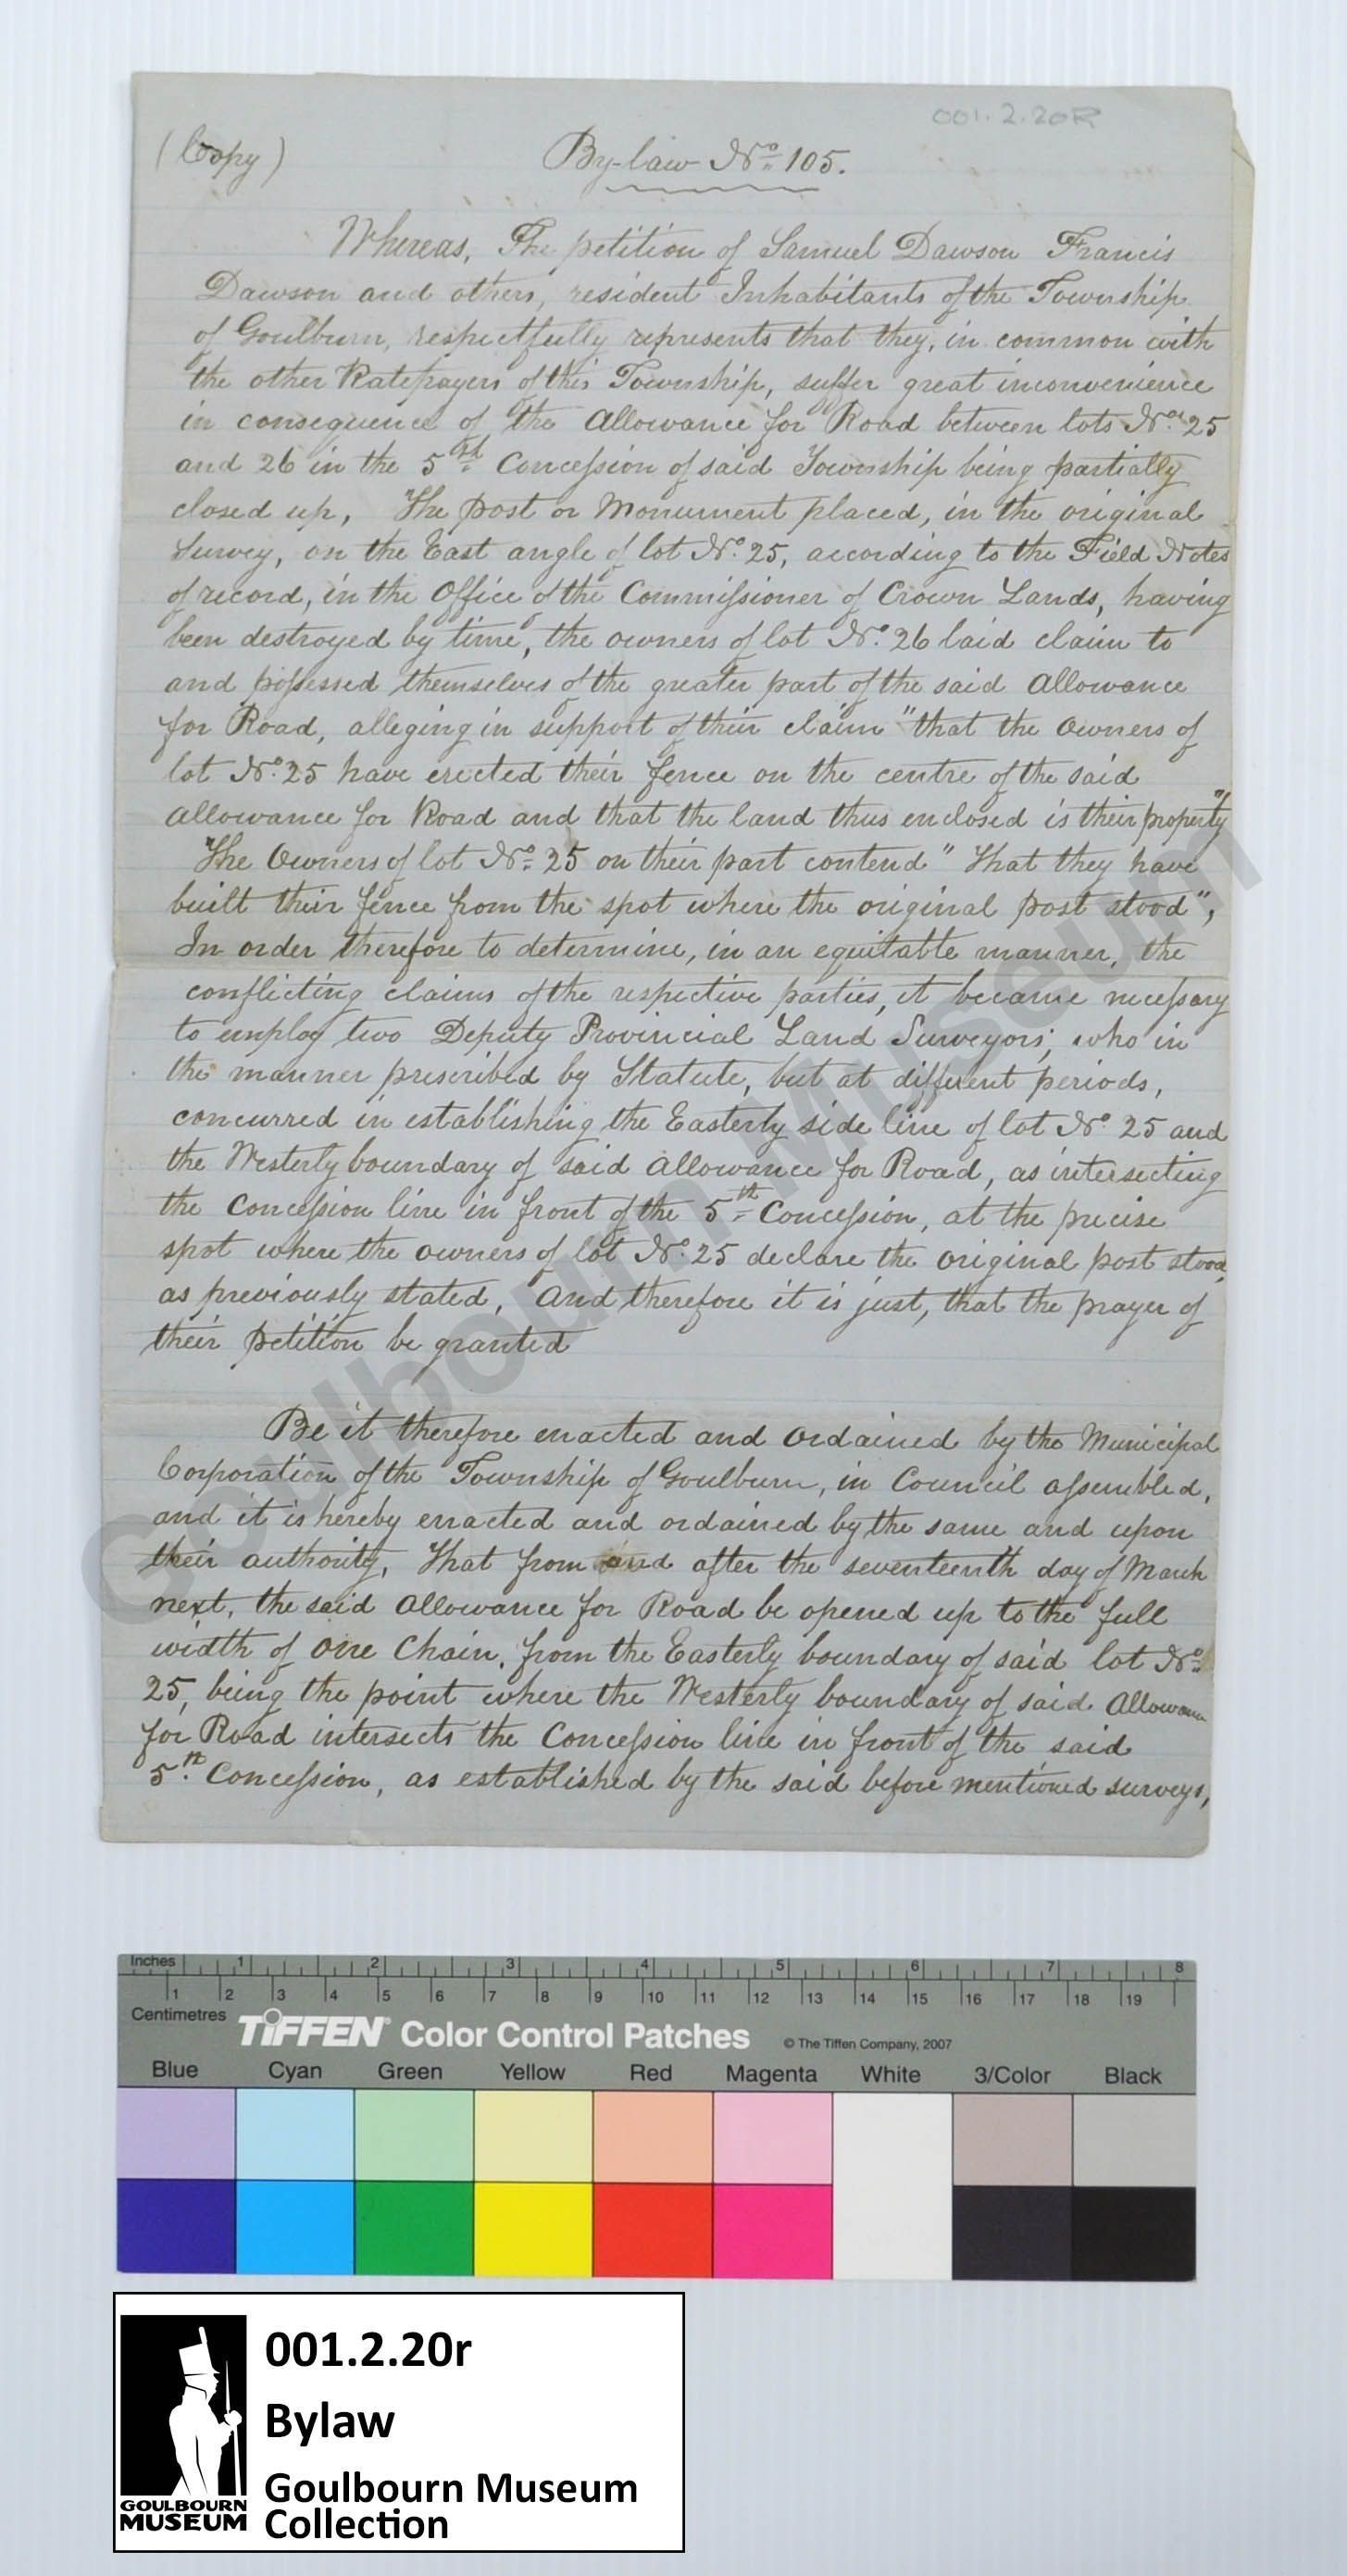 001.2.20R
(Copy)
By-law No. 105.
Whereas, The petition of Samuel Dawson Francis
Dawson and others, resident Inhabitants of the Township
of Goulburn, respectfully represents that they, in common with
the other Ratepayers of this Township, suffer great inconvenience
in consequence of the Allowance for Road between lots Nos. 25
and 26 in the 5th Concession of said Township being partially
closed up, The post or Monument placed, in the original
Survey, on the East angle of lot No. 25, according to the Field Notes
of record, in the Office of the Commissioner of Crown Lands, having
been destroyed by time, the owners of lot No. 26 laid claim to
and possessed themselves of the greater part of the said Allowance
for Road, alleging in support of their claim "that the Owners of
lot No. 25 have erected their fence on the centre of the said
allowance for Road and that the land thus enclosed is their property"
The Owners of lot No. 25 on their part contend "That they have
built their fence from the spot where the original post stood",
In order therefore to determine, in an equitable manner, the
conflicting claims of the respective parties, it became necessary
to employ two Deputy Provincial Land Surveyors; who in
the manner prescribed by Statute, but at different periods,
concurred in establishing the Easterly side line of lot No. 25 and
the Westerly boundary of said Allowance for Road, as intersecting
the Concession line in front of the 5th Concession, at the precise
spot where the owners of lot No. 25 declare the original post stood,
as previously stated, And therefore it is just, that the prayer of
their petition be granted
Be it therefore enacted and ordained by the Municipal
Corporation of the Township of Goulburn, in Council assembled,
and it is hereby enacted and ordained by the same and upon
their authority, That from and after the seventeenth day of March
next, the said Allowance for Road be opened up to the full
width of One Chain, from the Easterly boundary of said lot No.
25, being the point where the Westerly boundary of said Allowance
for Road intersects the Concession line in front of the said
5th Concession, as established by the said before mentioned surveys,
Goulbourn Museum
Inches 1 2 3 4 5 6 7 8
1 2 3 4 5 6 7 8 9 10 11 12 13 14 15 16 17 18 19
Centimetres
TIFFEN® Color Control Patches © The Tiffen Company, 2007
Blue Cyan Green Yellow Red Magenta White 3/Color Black
001.2.20r
Bylaw
Goulbourn Museum
Collection
GOULBOURN
MUSEUM